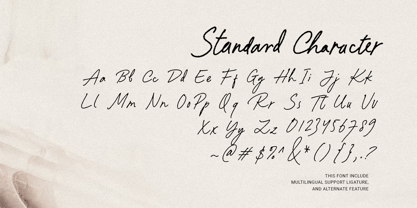 Standard Character
Aa Bb Cc Dd Ee Ff Gg Hh Ii Jj Kk
Ll Mm Nn Oo Pp Qq Rr Ss Tt Uu Vv
Xx Yy Zz 0123456789
~@#$%^&*(){},.?
THIS FONT INCLUDE
MULTILINGUAL SUPPORT LIGATURE,
AND ALTERNATE FEATURE